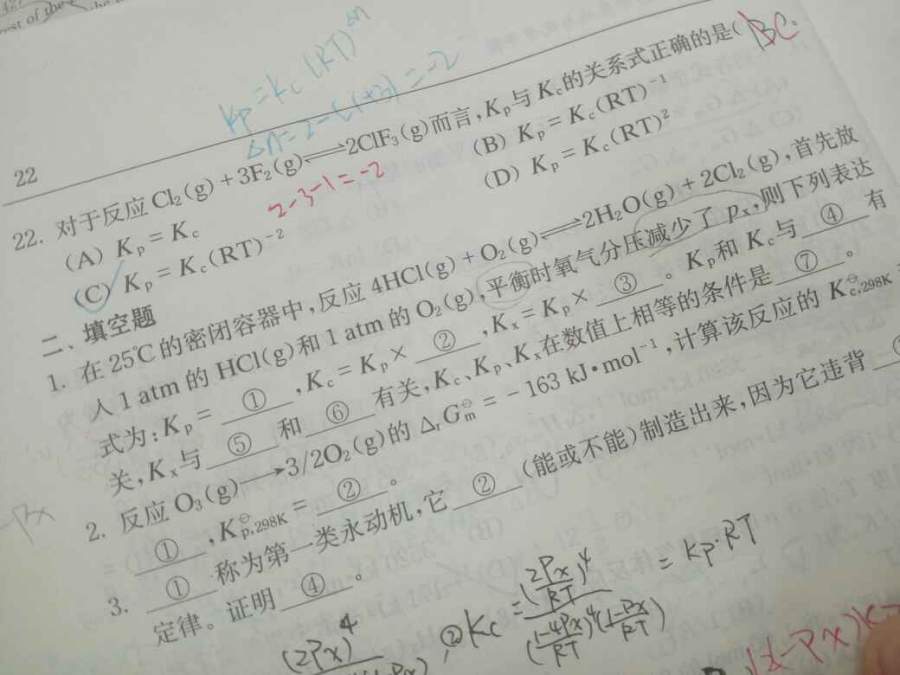 est of the
Kp = Kc (RT)^Δn
Δn = 2-(1+3) = -2
22
22. 对于反应 Cl₂(g) + 3F₂(g) ⇌ 2ClF₃(g) 而言, Kp 与 Kc 的关系式正确的是( BC.
2-3-1=-2
(A) Kp = Kc
(B) Kp = Kc(RT)⁻¹
(C) Kp = Kc(RT)⁻²
(D) Kp = Kc(RT)²
二、填空题
1. 在 25℃ 的密闭容器中, 反应 4HCl(g) + O₂(g) ⇌ 2H₂O(g) + 2Cl₂(g), 首先放
人 1 atm 的 HCl(g) 和 1 atm 的 O₂(g), 平衡时氧气分压减少了 pₓ, 则下列表达
式为: Kp = ① , Kc = Kp × ② , Kx = Kp × ③ 。Kp 和 Kc 与 ④ 有
关, Kx 与 ⑤ 和 ⑥ 有关, Kc、Kp、Kx 在数值上相等的条件是 ⑦ 。
2. 反应 O₃(g) ⟶ 3/2O₂(g) 的 ΔrG⊖m = −163 kJ·mol⁻¹, 计算该反应的 K⊖c,298K =
① , K⊖p,298K = ② 。
3. ① 称为第一类永动机, 它 ② (能或不能)制造出来, 因为它违背
定律。证明 ④ 。
-Px
(2Px)⁴
② Kc = (2Px/RT)⁴ / (1-4Px/RT)⁴(1-Px/RT) = Kp·RT